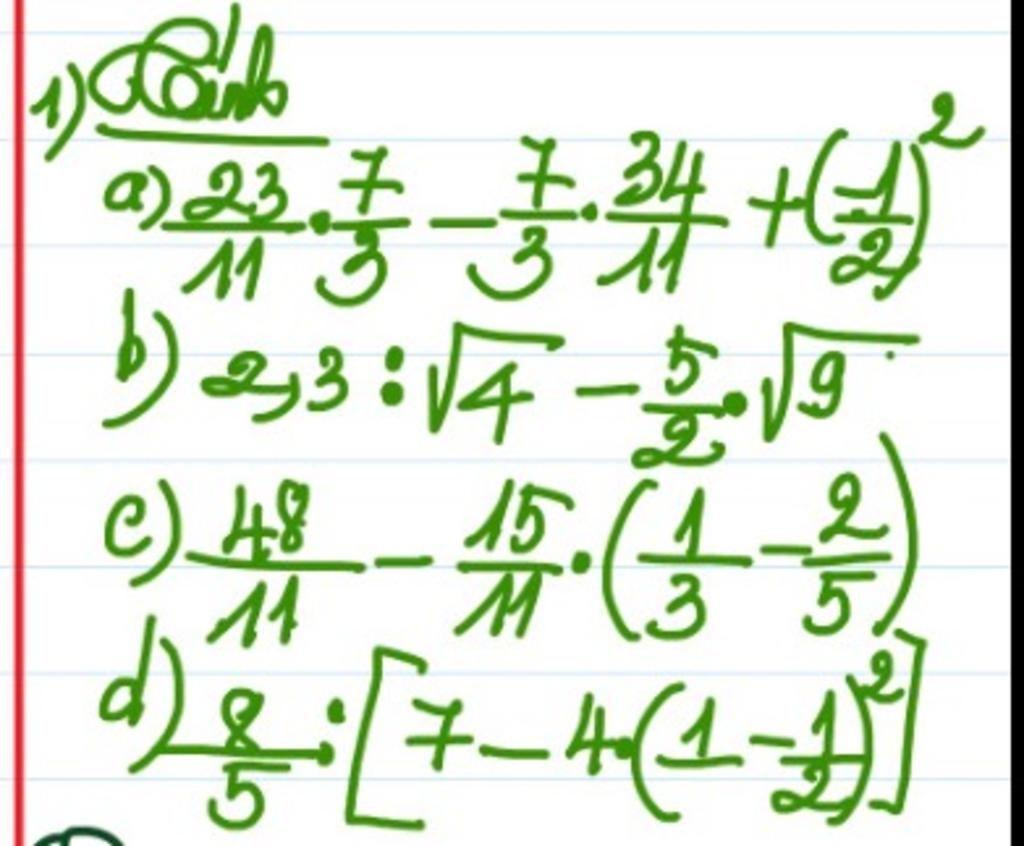 1) Tính
a) 23/11 · 7/3 - 7/3 · 34/11 + (-1/2)²
b) 2,3 : √4 - 5/2 · √9
c) 48/11 - 15/11 · (1/3 - 2/5)
d) 8/5 : [7 - 4 · (1 - 1/2)²]